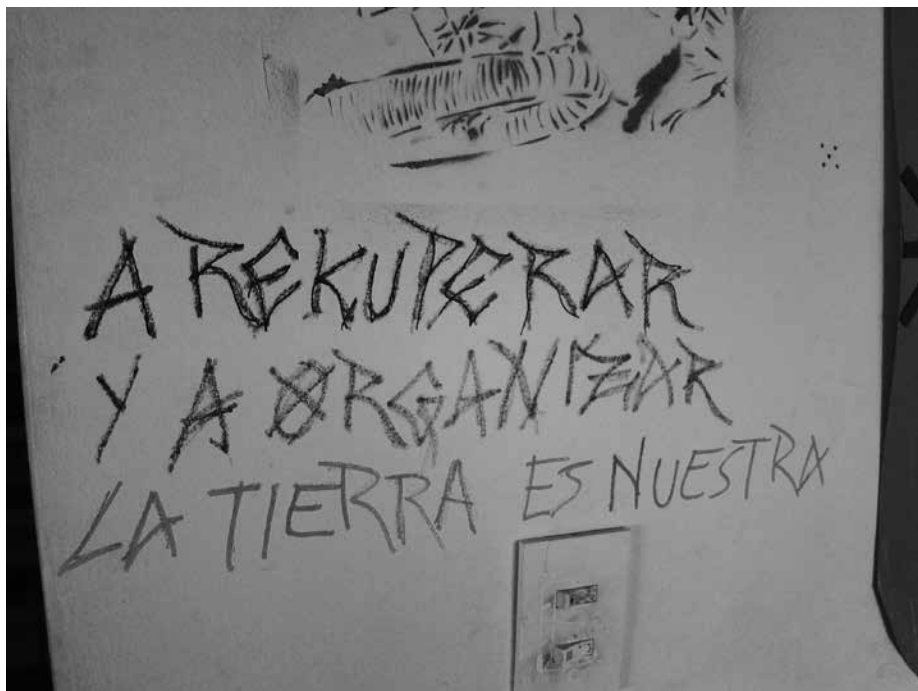 A REKUPERAR
Y A ORGANIZAR
LA TIERRA ES NUESTRA